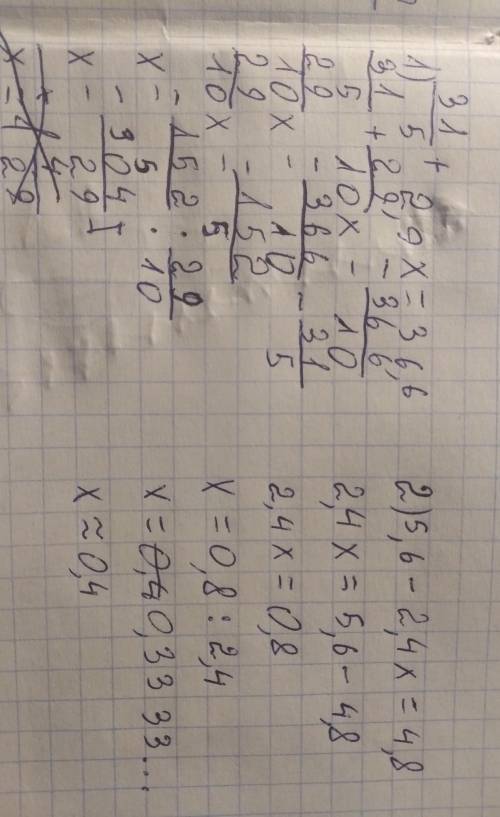 1) 31/5 + 2,9x = 36,6
31/5 + 29/10 x = 366/10
29/10 x = 366/10 - 31/5
29/10 x = 152/5
x = 152/5 : 29/10
x = 304/29
2) 5,6 - 2,4x = 4,8
2,4x = 5,6 - 4,8
2,4x = 0,8
x = 0,8 : 2,4
x = 0,4 0,3333...
x ≈ 0,4